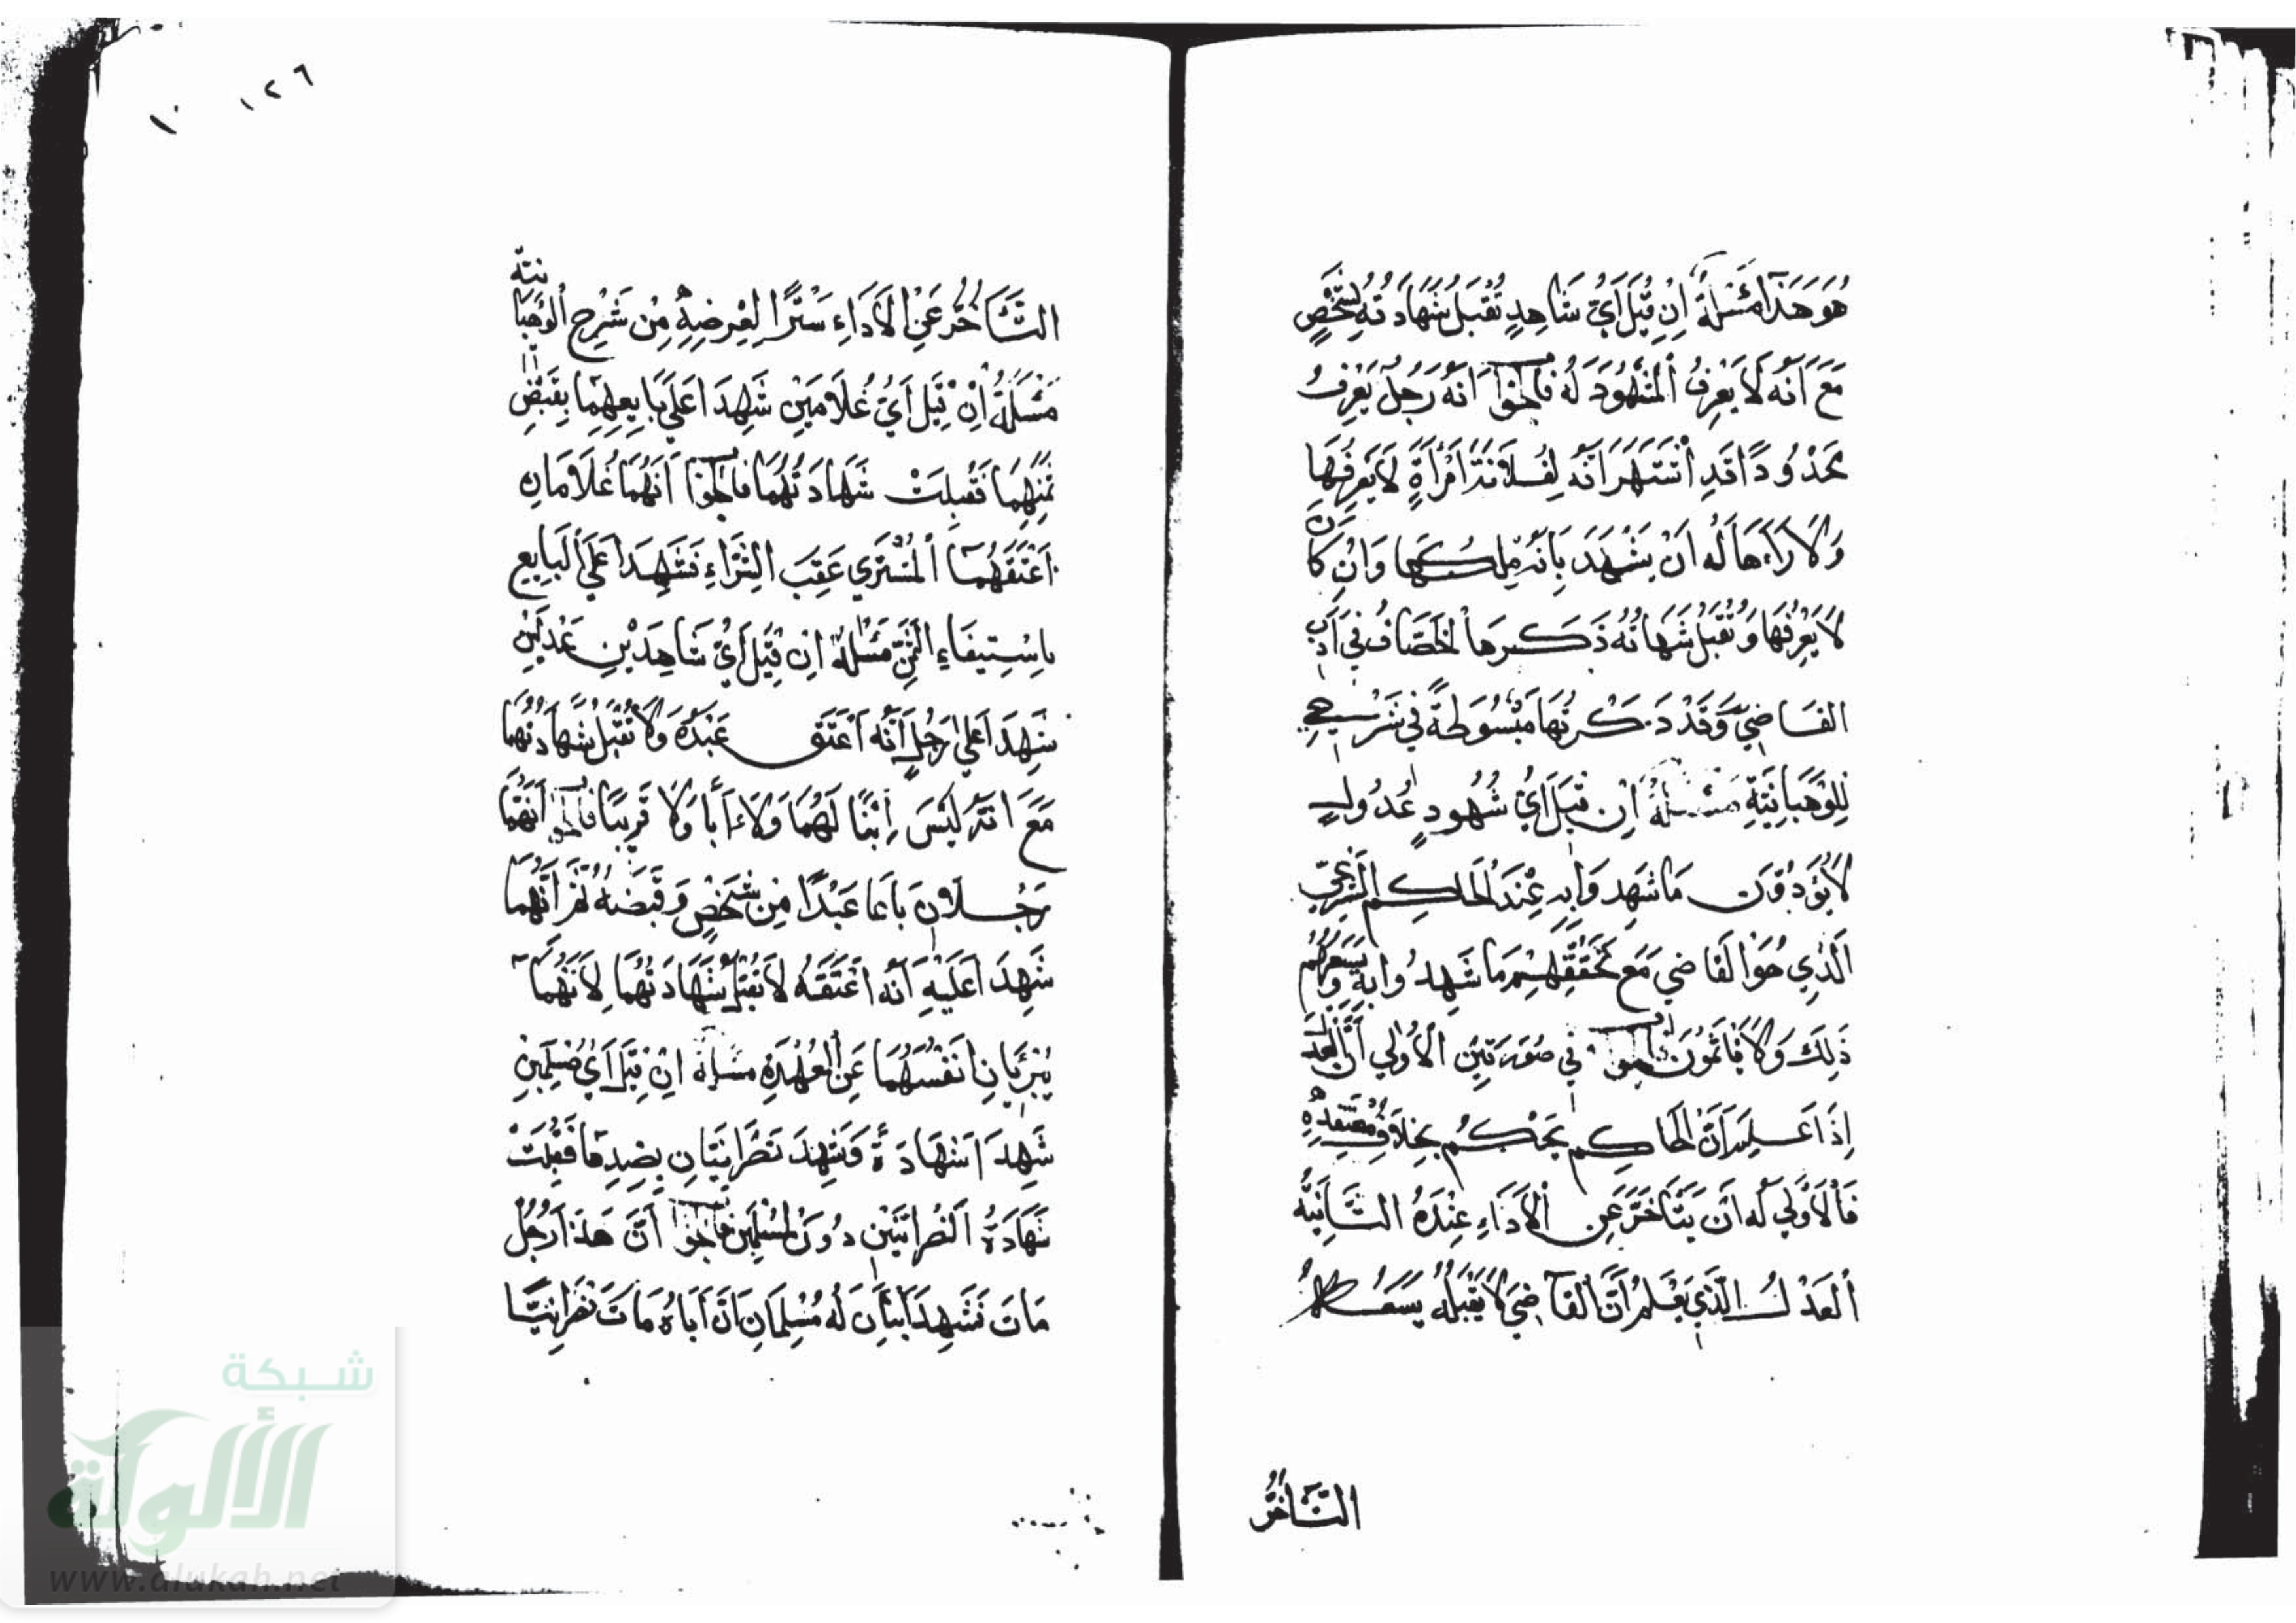 هُوَ هَذَا مَسْئَلَةٌ اِنْ قِيْلَ اَيُّ شَاهِدٍ تُقْبَلُ شَهَادَتُهُ لِشَخْصٍ
مَعَ اَنَّهُ لَا يَعْرِفُ الْمَشْهُودَ لَهُ فَالْجَوَابُ اَنَّهُ رَجُلٌ يَعْرِفُ
مَحْدُودًا قَدِ اشْتَهَرَ اَنَّهُ لِفُلَانَةَ امْرَأَةٍ لَا يَعْرِفُهَا
وَلَا رَاَهَا لَهُ اَنْ يَشْهَدَ بِاَنَّهُ مِلْكُهَا وَاِنْ كَانَ
لَا يَعْرِفُهَا وَتُقْبَلُ شَهَاتُهُ ذَكَرَهَا الْخَصَّافُ فِي اَدَبِ
القَاضِيِّ وَقَدْ ذَكَرْتُهَا مَبْسُوطَةً فِي شَرْحِي
لِلْوَهْبَانِيَّةِ مَسْئَلَةٌ اِنْ قِيْلَ اَيُّ شُهُودٍ عُدُولٍ
لَا يُؤَدُّوْنَ مَا شَهِدُوَا بِهِ عِنْدَ الْحَاكِمِ الشَّرْعِيِّ
الَّذِي هُوَ الْقَاضِي مَعَ تَحَقُّقِهِمْ مَا شَهِدُوا بِهِ وَيَسَعُهُمْ
ذَلِكَ وَلَا يَاْثَمُوْنَ فَالْجَوَابُ فِي صُوْرَتَيْنِ الْاُوْلٰى اَنَّ الْعَدْلَ
اِذَا عَلِمَ اَنَّ الْحَاكِمَ يَحْكُمُ بِخِلَافِ مُعْتَقَدِهِ
فَالْاَوْلَى لَهُ اَنْ يَتَاَخَّرَ عَنِ الْاَدَاءِ عِنْدَهُ الثَّانِيَةُ
اَلْعَدْلُ الَّذِي يَعْلَمُ اَنَّ الْقَاضِيَ لَا يَقْبَلُهُ يَسَعُهُ
التَّاَخُّرُ
١٢٦
١٠
التَّاَخُّرُ عَنِ الْاَدَاءِ سَتْرًا لِعِرْضِهِ مِنْ شَرْحِ الْوَهْبَانِيَّةِ
مَسْئَلَةٌ اِنْ قِيْلَ اَيُّ غُلَامَيْنِ شَهِدَا عَلَى بَايِعِهِمَا بِقَبْضِ
ثَمَنِهِمَا فَقُبِلَتْ شَهَادَتُهُمَا فَالْجَوَابُ اَنَّهُمَا غُلَامَانِ
اَعْتَقَهُمَا الْمُشْتَرِي عَقِبَ الشِّرَاءِ فَشَهِدَا عَلَى الْبَايِعِ
بِاسْتِيفَاءِ الثَّمَنِ مَسْئَلَةٌ اِنْ قِيْلَ اَيُّ شَاهِدَيْنِ عَدْلَيْنِ
شَهِدَا عَلَى رَجُلٍ اَنَّهُ اَعْتَقَ عَبْدَهُ وَلَا تُقْبَلُ شَهَادَتُهُمَا
مَعَ اَنَّهُ لَيْسَ اِبْنًا لَهُمَا وَلَا اَبًا وَلَا قَرِيبًا فَالْجَوَابُ اَنَّهُمَا
رَجُلَانِ بَاعَا عَبْدًا مِنْ شَخْصٍ وَقَبَضَهُ ثُمَّ اَنَّهُمَا
شَهِدَا عَلَيْهِ اَنَّهُ اَعْتَقَهُ لَا تُقْبَلُ شَهَادَتُهُمَا لِاَنَّهُمَا
يُبْرِئَانِ اَنْفُسَهُمَا عَنِ الْعُهْدَةِ مَسْئَلَةٌ اِنْ قِيْلَ اَيُّ مُسْلِمَيْنِ
شَهِدَا شَهَادَةً وَشَهِدَ نَصْرَانِيَّانِ بِضِدِّهَا فَقُبِلَتْ
شَهَادَةُ النَّصْرَانِيَّيْنِ دُوْنَ الْمُسْلِمَيْنِ فَالْجَوَابُ اَنَّ هَذَا رَجُلٌ
مَاتَ فَشَهِدَ اَبْنَانِ لَهُ مُسْلِمَانِ اَنَّ اَبَاهُ مَاتَ نَصْرَانِيًّا
شبكة
الألوكة
www.alukah.net